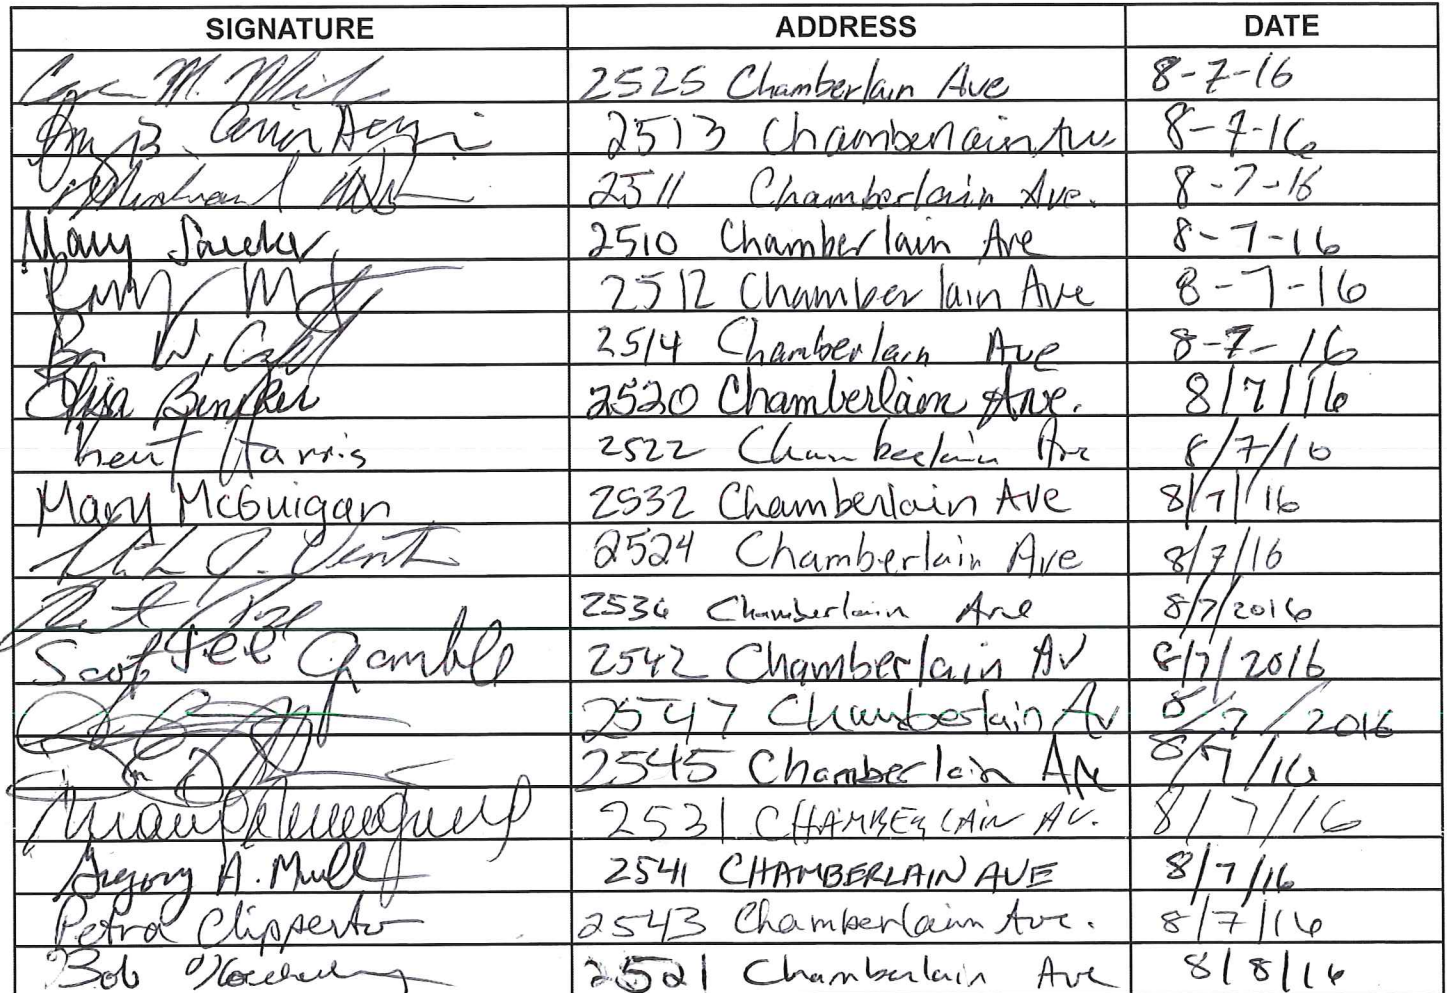 SIGNATURE ADDRESS DATE
M. 2525 Chamberlain Ave 8-7-16
2513 Chamberlain Ave 8-7-16
2511 Chamberlain Ave. 8-7-16
Mary 2510 Chamberlain Ave 8-7-16
2512 Chamberlain Ave 8-7-16
W. 2514 Chamberlain Ave 8-7-16
2520 Chamberlain Ave. 8/7/16
Kent Harris 2522 Chamberlain Ave 8/7/16
Mary McGuigan 2532 Chamberlain Ave 8/7/16
J. 2524 Chamberlain Ave 8/7/16
2536 Chamberlain Ave 8/7/2016
Scot Lee Gamble 2542 Chamberlain Av 8/7/2016
2547 Chamberlain Av 8/7/2016
2545 Chamberlain Ave 8/7/16
2531 CHAMBERLAIN AV. 8/7/16
Gregory A. Mull 2541 CHAMBERLAIN AVE 8/7/16
Petra Clipperton 2543 Chamberlain Ave. 8/7/16
Bob 2521 Chamberlain Ave 8/8/16